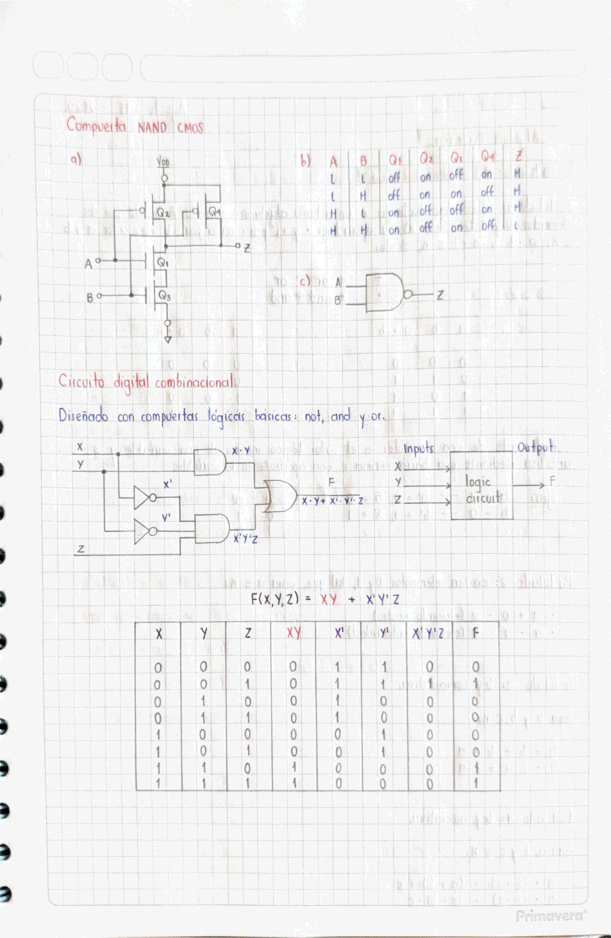 Compuerta NAND CMOS
a)
VDD
Q2
Q4
Z
A
Q1
B
Q3
b) A B Q1 Q2 Q3 Q4 Z
L L off on off on H
L H off on on off H
H L on off off on H
H H on off on off L
c) A
B
Z
Circuito digital combinacional.
Diseñado con compuertas lógicas básicas: not, and y or.
X
Y
X·Y
X'
Y'
F
X·Y+X'·Y'·Z
X'Y'Z
Z
Inputs Output
X
Y
Z
logic
circuit
F
F(X,Y,Z) = XY + X'Y'Z
X Y Z XY X' Y' X'Y'Z F
0 0 0 0 1 1 0 0
0 0 1 0 1 1 1 1
0 1 0 0 1 0 0 0
0 1 1 0 1 0 0 0
1 0 0 0 0 1 0 0
1 0 1 0 0 1 0 0
1 1 0 1 0 0 0 1
1 1 1 1 0 0 0 1
Primavera